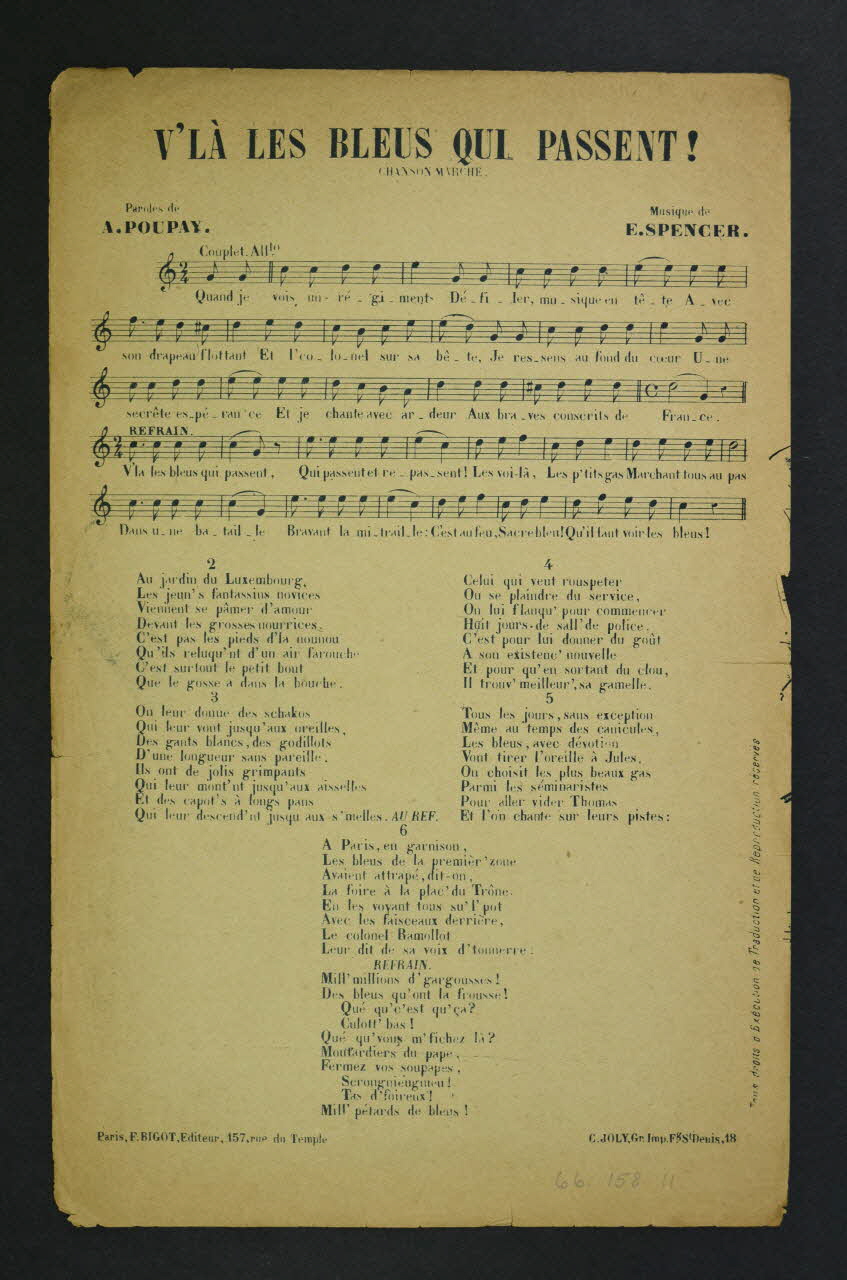 V'LÀ LES BLEUS QUI PASSENT!
CHANSON MARCHE.
Paroles de
A. POUPAY.
Musique de
E. SPENCER.
Couplet. All!º
Quand je vois un ré_gi_ments Dé_fi_ler, mu_sique en tê_te A_vec
son drapeau flottant Et l'co_lo_nel sur sa bê_te, Je res_sens au fond du cœur U_ne
secrête es_pé_ran'ce Et je chante avec ar_deur Aux bra_ves conscrits de Fran_ce.
REFRAIN.
V'la les bleus qui passent, Qui passent et re_pas_sent! Les voi_là, Les p'tits gas Marchant tous au pas
Dans u_ne ba_tail_le Bravant la mi_trail_le: C'est au feu, Sacrebleu! Qu'il faut voir les bleus!
2
Au jardin du Luxembourg,
Les jeun's fantassins novices
Viennent se pâmer d'amour
Devant les grosses nourrices.
C'est pas les pieds d'la nounou
Qu'ils reluqu'nt d'un air farouche
C'est surtout le petit bout
Que le gosse a dans la bouche.
3
On leur donne des schakos
Qui leur vont jusqu'aux oreilles,
Des gants blancs, des godillots
D'une longueur sans pareille.
Ils ont de jolis grimpants
Qui leur mont'nt jusqu'aux aisselles
Et des capot's à longs pans
Qui leur descend'nt jusqu'aux s'melles. AU REF.
4
Celui qui veut rouspeter
Ou se plaindre du service,
On lui flanqu' pour commencer
Huit jours de sall' de police.
C'est pour lui donner du goût
A son existenc' nouvelle
Et pour qu'en sortant du clou,
Il trouv' meilleur', sa gamelle.
5
Tous les jours, sans exception
Même au temps des canicules,
Les bleus, avec dévotion
Vont tirer l'oreille à Jules,
On choisit les plus beaux gas
Parmi les séminaristes
Pour aller vider Thomas
Et l'on chante sur leurs pistes:
6
A Paris, en garnison,
Les bleus de la premièr' zone
Avaient attrapé, dit-on,
La foire à la plac' du Trône.
En les voyant tous su' l' pot
Avec les faisceaux derrière,
Le colonel Ramollot
Leur dit de sa voix d'tonnerre:
REFRAIN.
Mill' millions d'gargousses!
Des bleus qu'ont la frousse!
Qué qu'c'est qu'ça?
Culott' bas!
Qué qu'vous m'fichez là?
Moutardiers du pape,
Fermez vos soupapes,
Scrongnieugnieu!
Tas d'foireux!
Mill' pétards de bleus!
Tous droits d'Exécution de Traduction et de Reproduction réservés
Paris, F. BIGOT, Editeur, 157, rue du Temple
C. JOLY, Gr. Imp. Fg St Denis, 18
66. 158 11